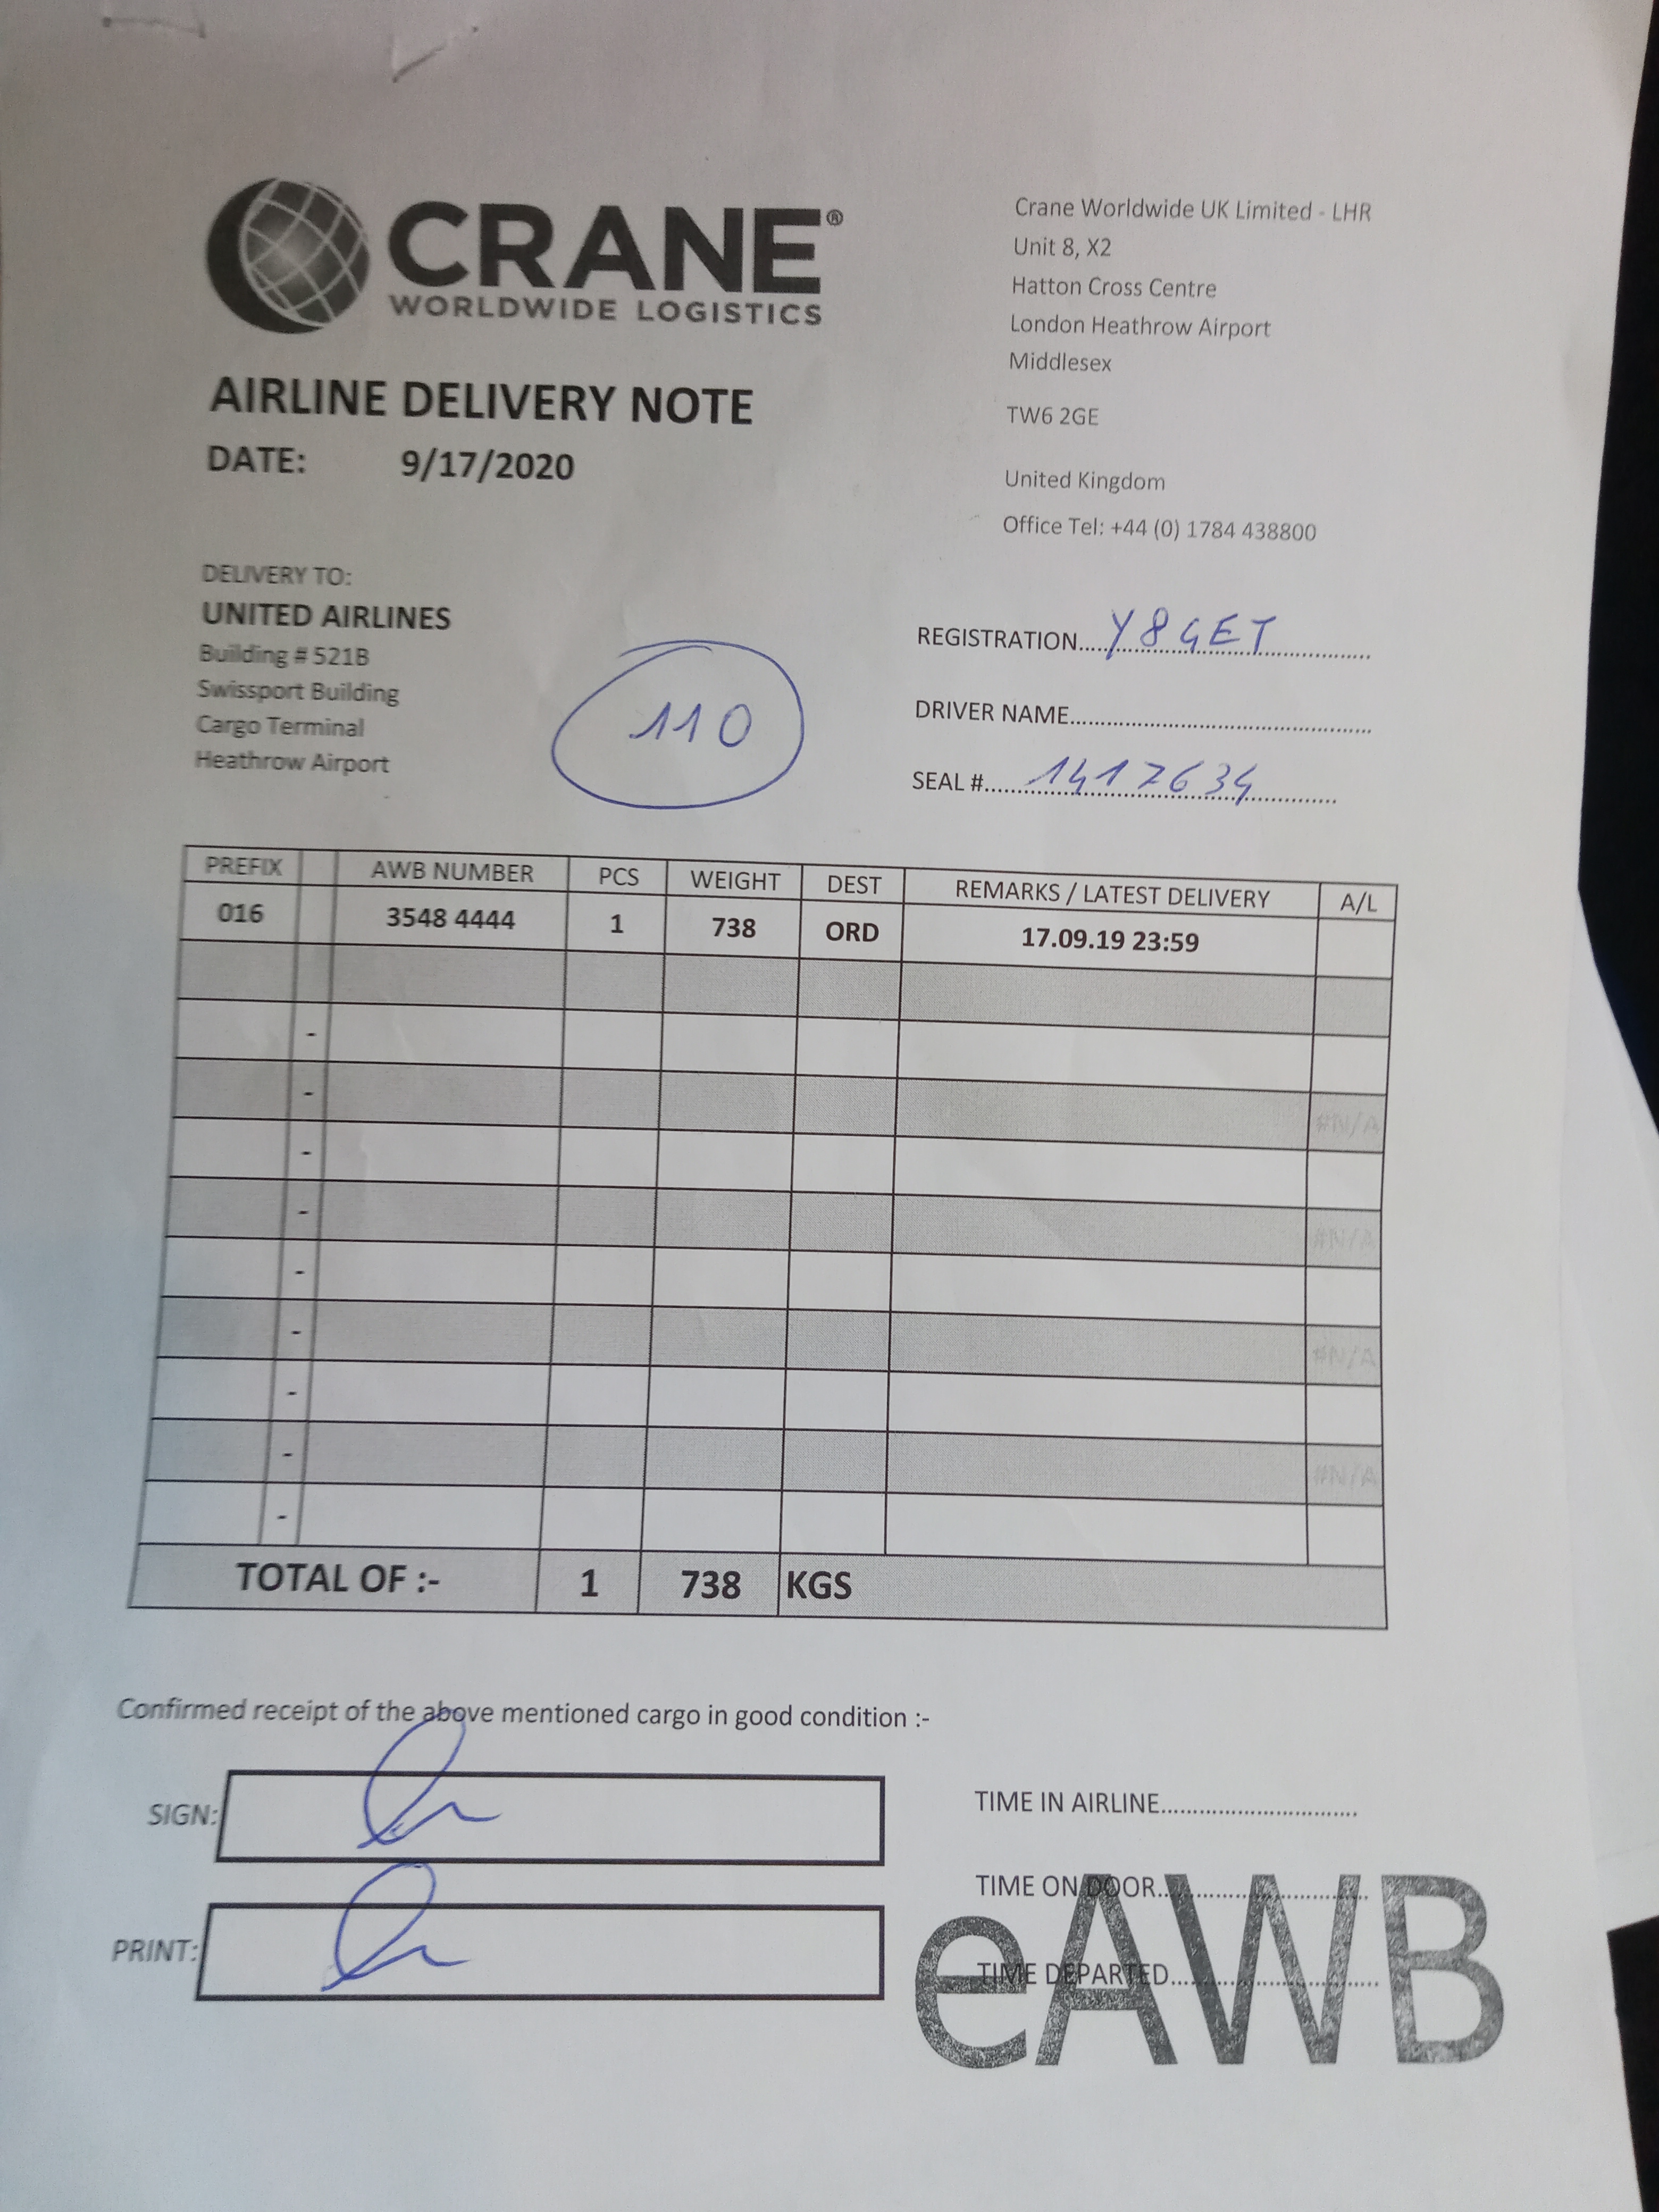 CRANE®
WORLDWIDE LOGISTICS
Crane Worldwide UK Limited - LHR
Unit 8, X2
Hatton Cross Centre
London Heathrow Airport
Middlesex
TW6 2GE
United Kingdom
Office Tel: +44 (0) 1784 438800
AIRLINE DELIVERY NOTE
DATE: 9/17/2020
DELIVERY TO:
UNITED AIRLINES
Building # 521B
Swissport Building
Cargo Terminal
Heathrow Airport
110
REGISTRATION..... Y8GET
DRIVER NAME.....
SEAL #..... 1417634
PREFIX AWB NUMBER PCS WEIGHT DEST REMARKS / LATEST DELIVERY A/L
016 3548 4444 1 738 ORD 17.09.19 23:59
-
-
#N/A
-
-
#N/A
-
-
#N/A
-
-
#N/A
-
TOTAL OF :- 1 738 KGS
Confirmed receipt of the above mentioned cargo in good condition :-
SIGN:
PRINT:
TIME IN AIRLINE.....
TIME ON DOOR.....
TIME DEPARTED.....
eAWB